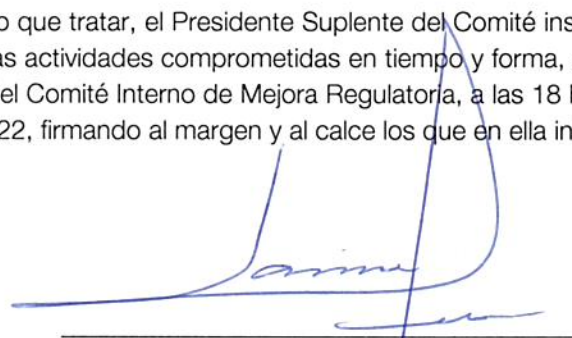 o que tratar, el Presidente Suplente del Comité ins
as actividades comprometidas en tiempo y forma,
el Comité Interno de Mejora Regulatoria, a las 18
22, firmando al margen y al calce los que en ella in
Jaime